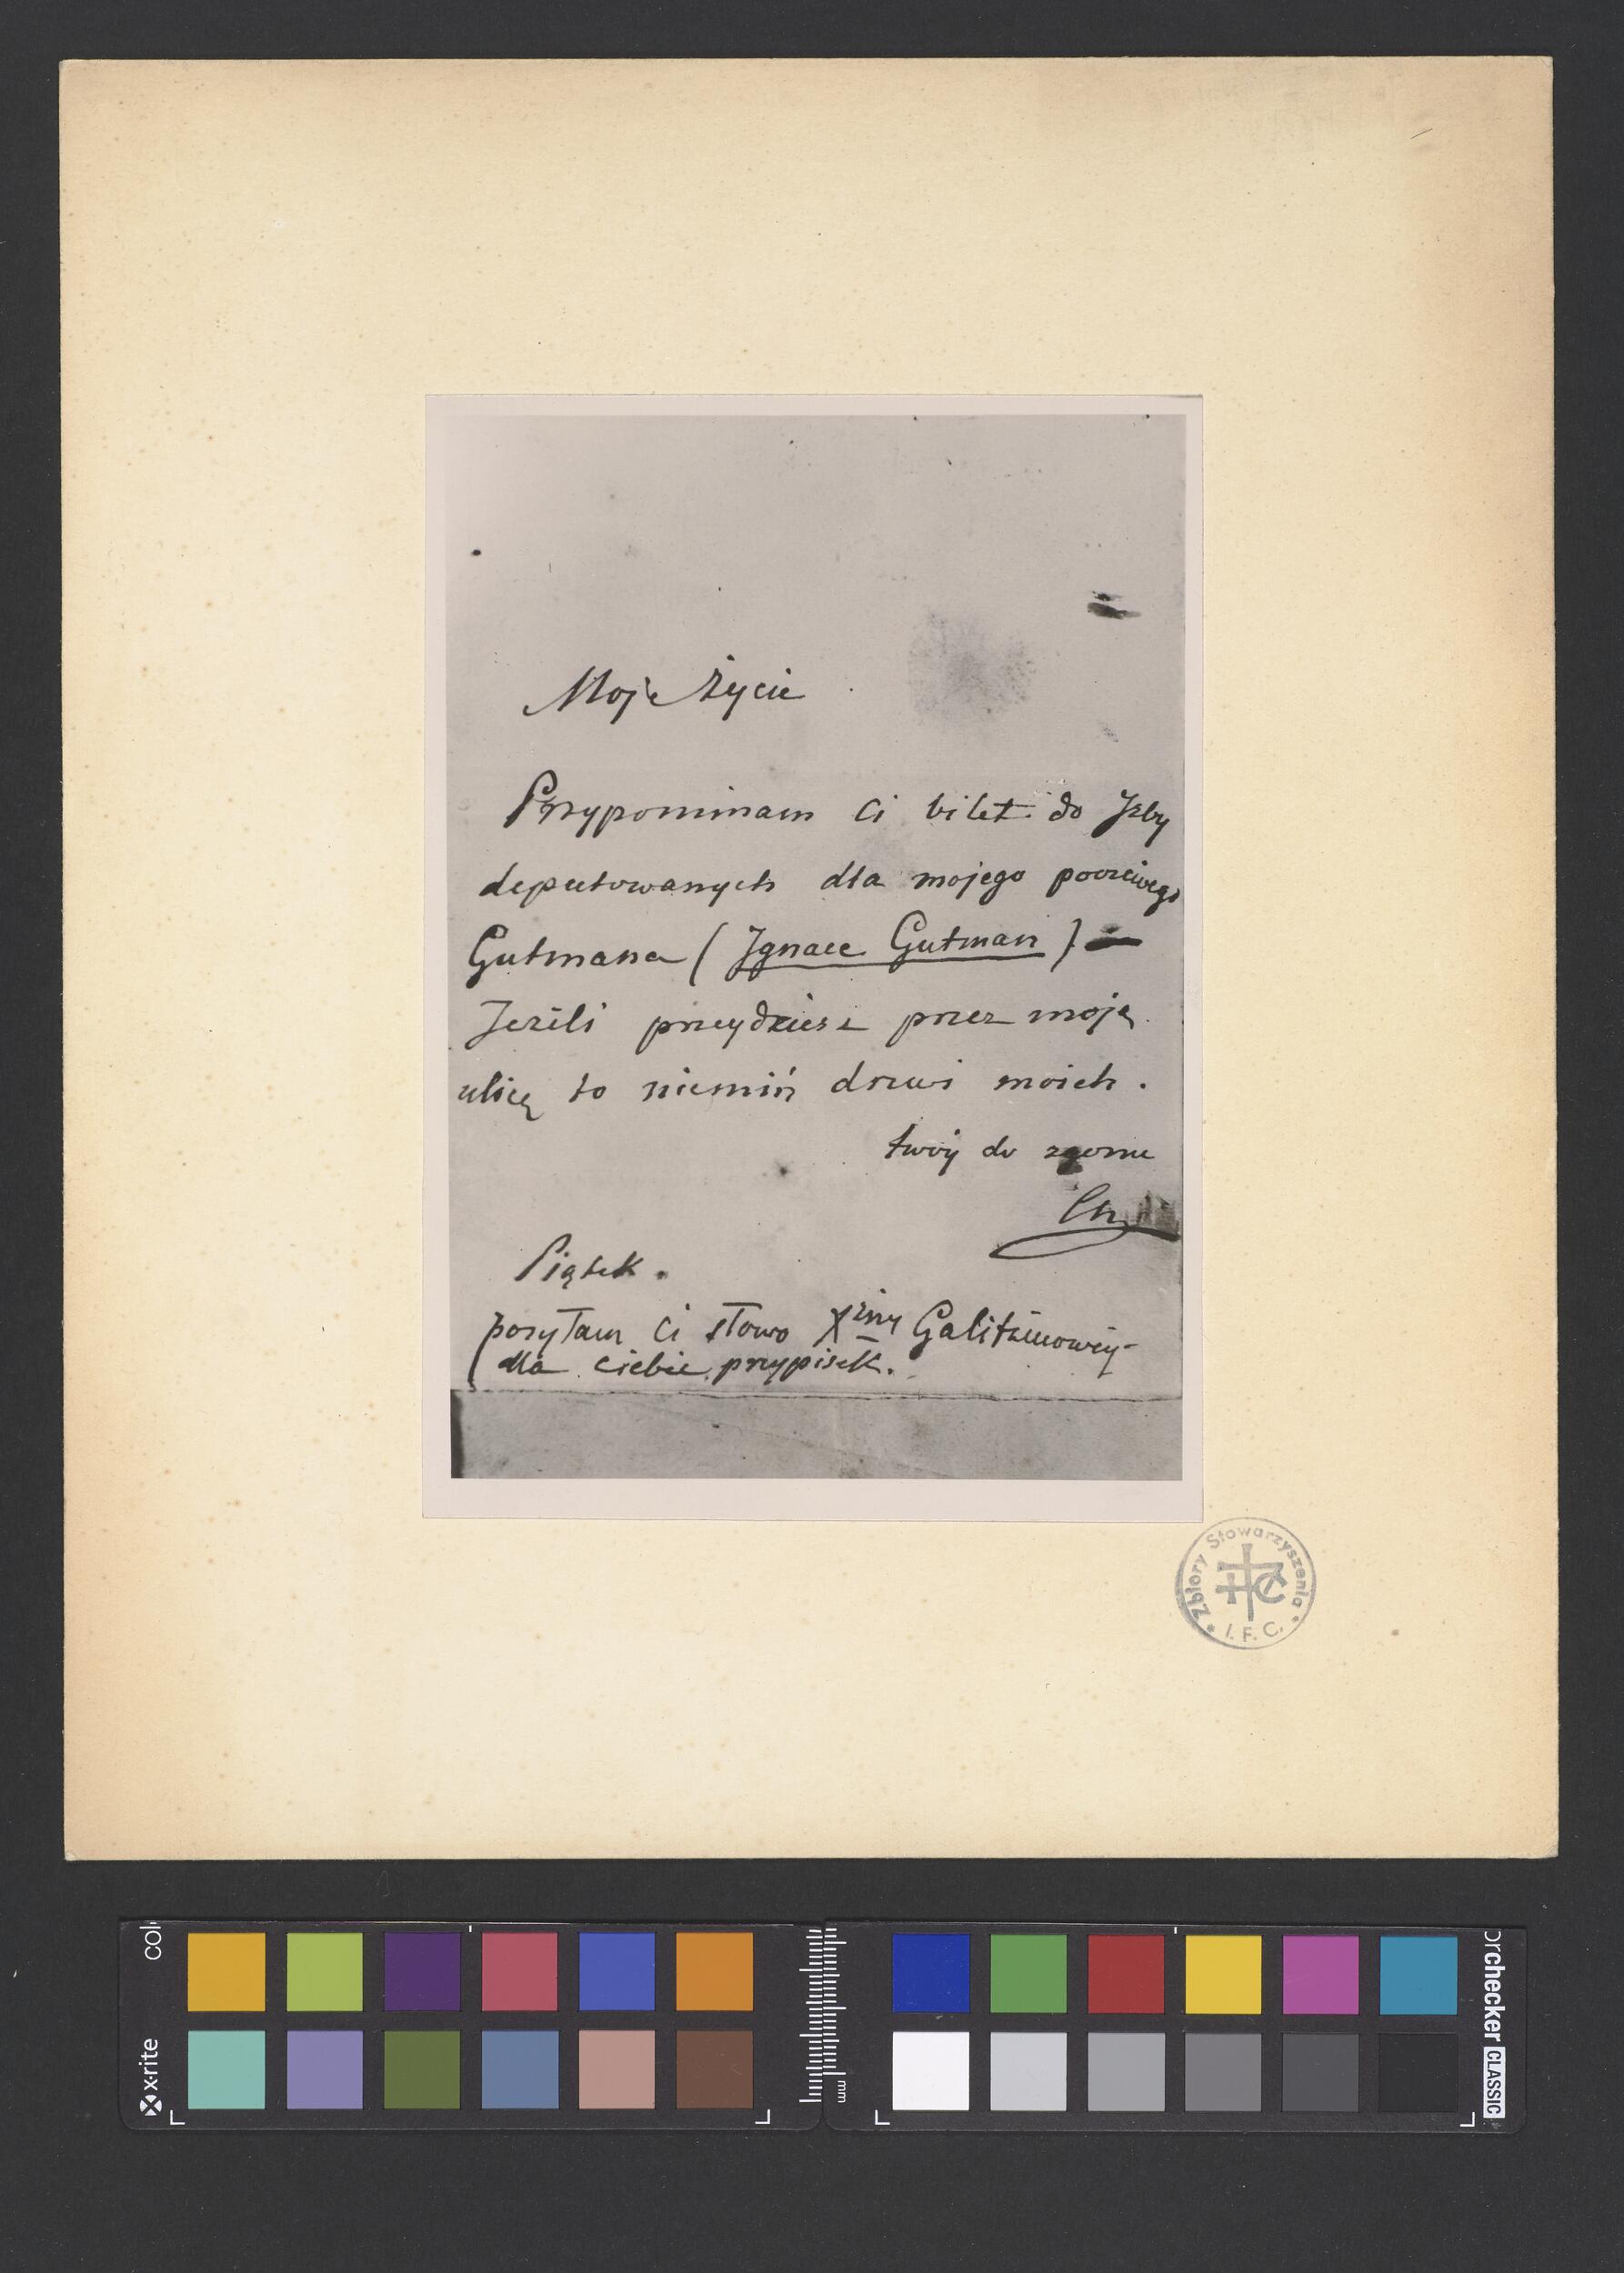 Moje Życie
Przypominam Ci bilet do Jzby
deputowanych dla mojego poczciwego
Gutmana (Ignace Gutman) —
Jeżeli przeydziesz przez moję
ulicę to niemiń drzwi moich.
twój do zgonu
Ch
Piątek.
posyłam Ci słowo Xżny Galitzinowéy -
dla ciebie przypisek.
* Zbiory Stowarzyszenia *
I. F. C.
colorchecker CLASSIC
x-rite
mm